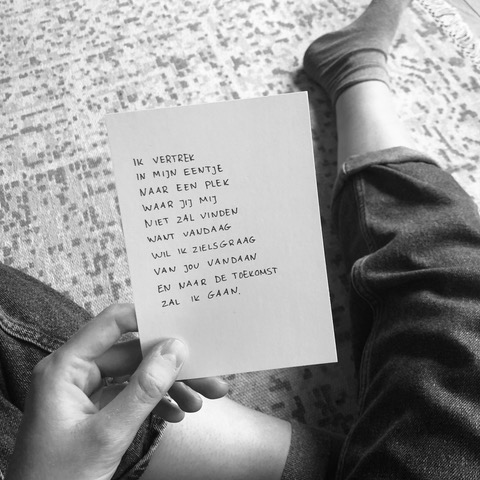 IK VERTREK
IN MIJN EENTJE
NAAR EEN PLEK
WAAR JIJ MIJ
NIET ZAL VINDEN
WANT VANDAAG
WIL IK ZIELSGRAAG
VAN JOU VANDAAN
EN NAAR DE TOEKOMST
ZAL IK GAAN.